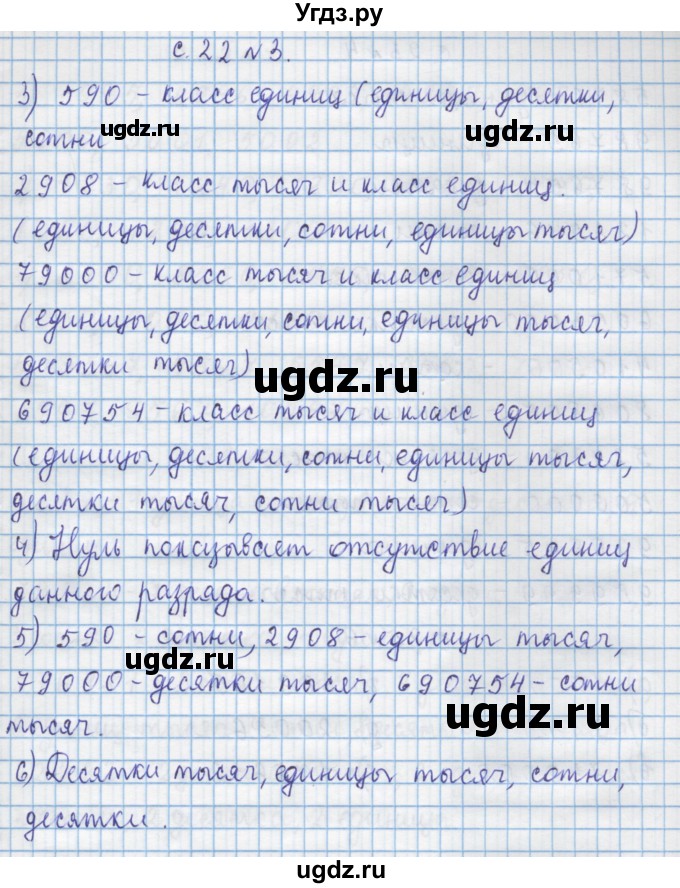 Угдз.ру
с. 22 №3.
3) 590 – класс единиц (единицы, десятки,
сотни
ugdz.ru
ugdz.ru
2908 – класс тысяч и класс единиц.
(единицы, десятки, сотни, единицы тысяч)
79000 – класс тысяч и класс единиц
(единицы, десятки, сотни, единицы тысяч,
десятки тысяч)
ugdz.ru
690754 – класс тысяч и класс единиц
(единицы, десятки, сотни, единицы тысяч,
десятки тысяч, сотни тысяч)
4) Нуль показывает отсутствие единиц
данного разряда.
ugdz.ru
5) 590 – сотни, 2908 – единицы тысяч,
ugdz.ru
79000 – десятки тысяч, 690754 – сотни
тысяч.
ugdz.ru
6) Десятки тысяч, единицы тысяч, сотни,
десятки.
ugdz.ru